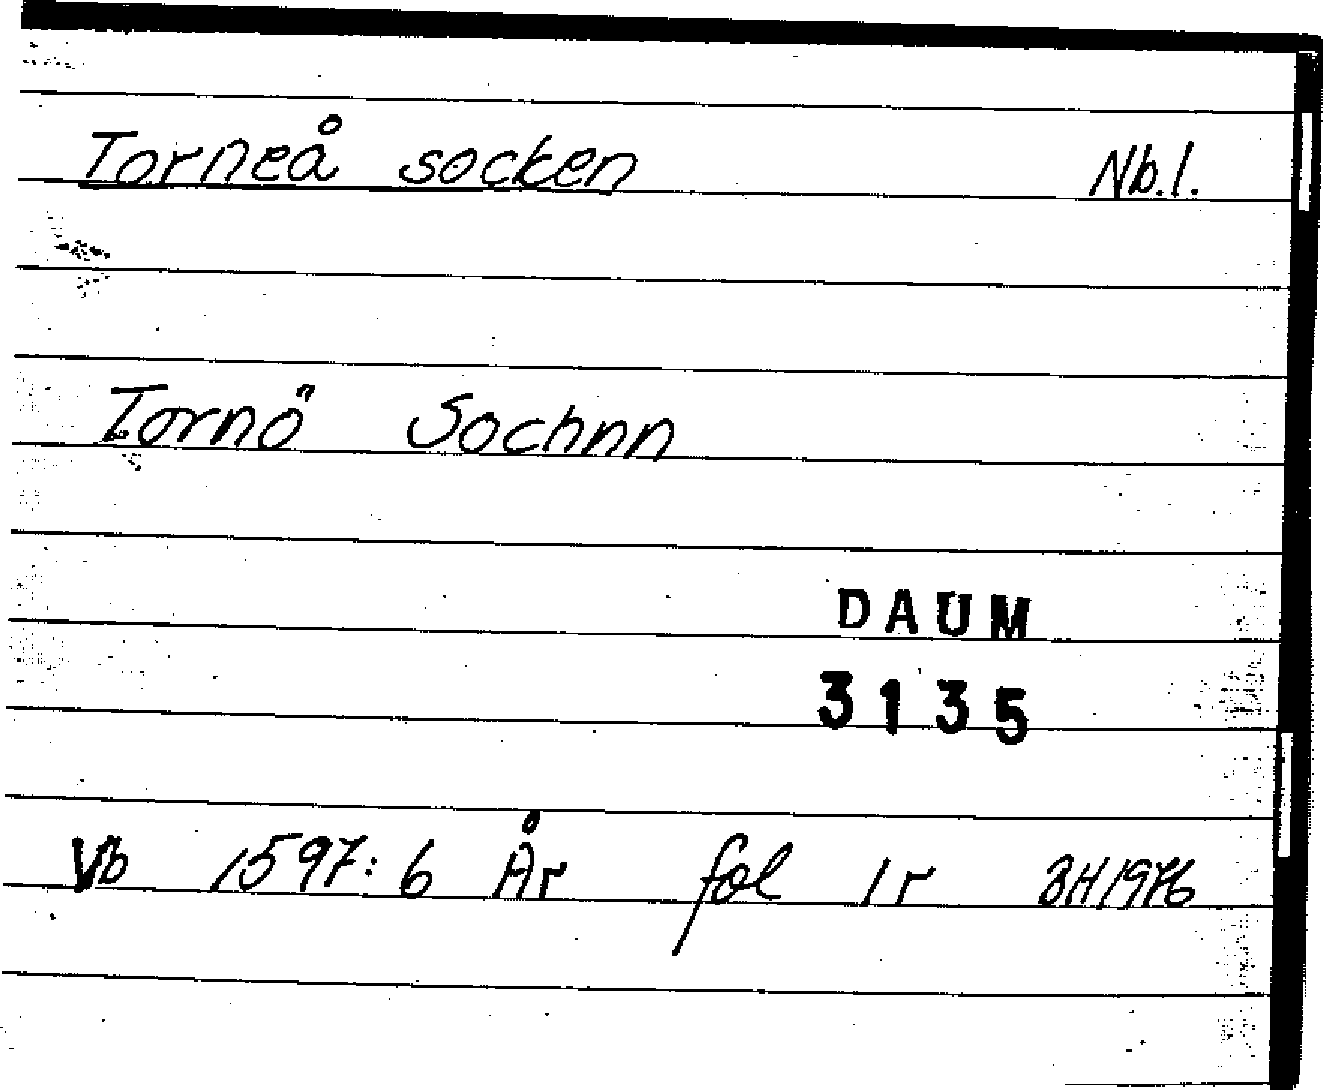 Torneå socken Nb.l.
Tornö Sochnn
DAUM
3135
Vb 1597:6 År fol 1r BH1976